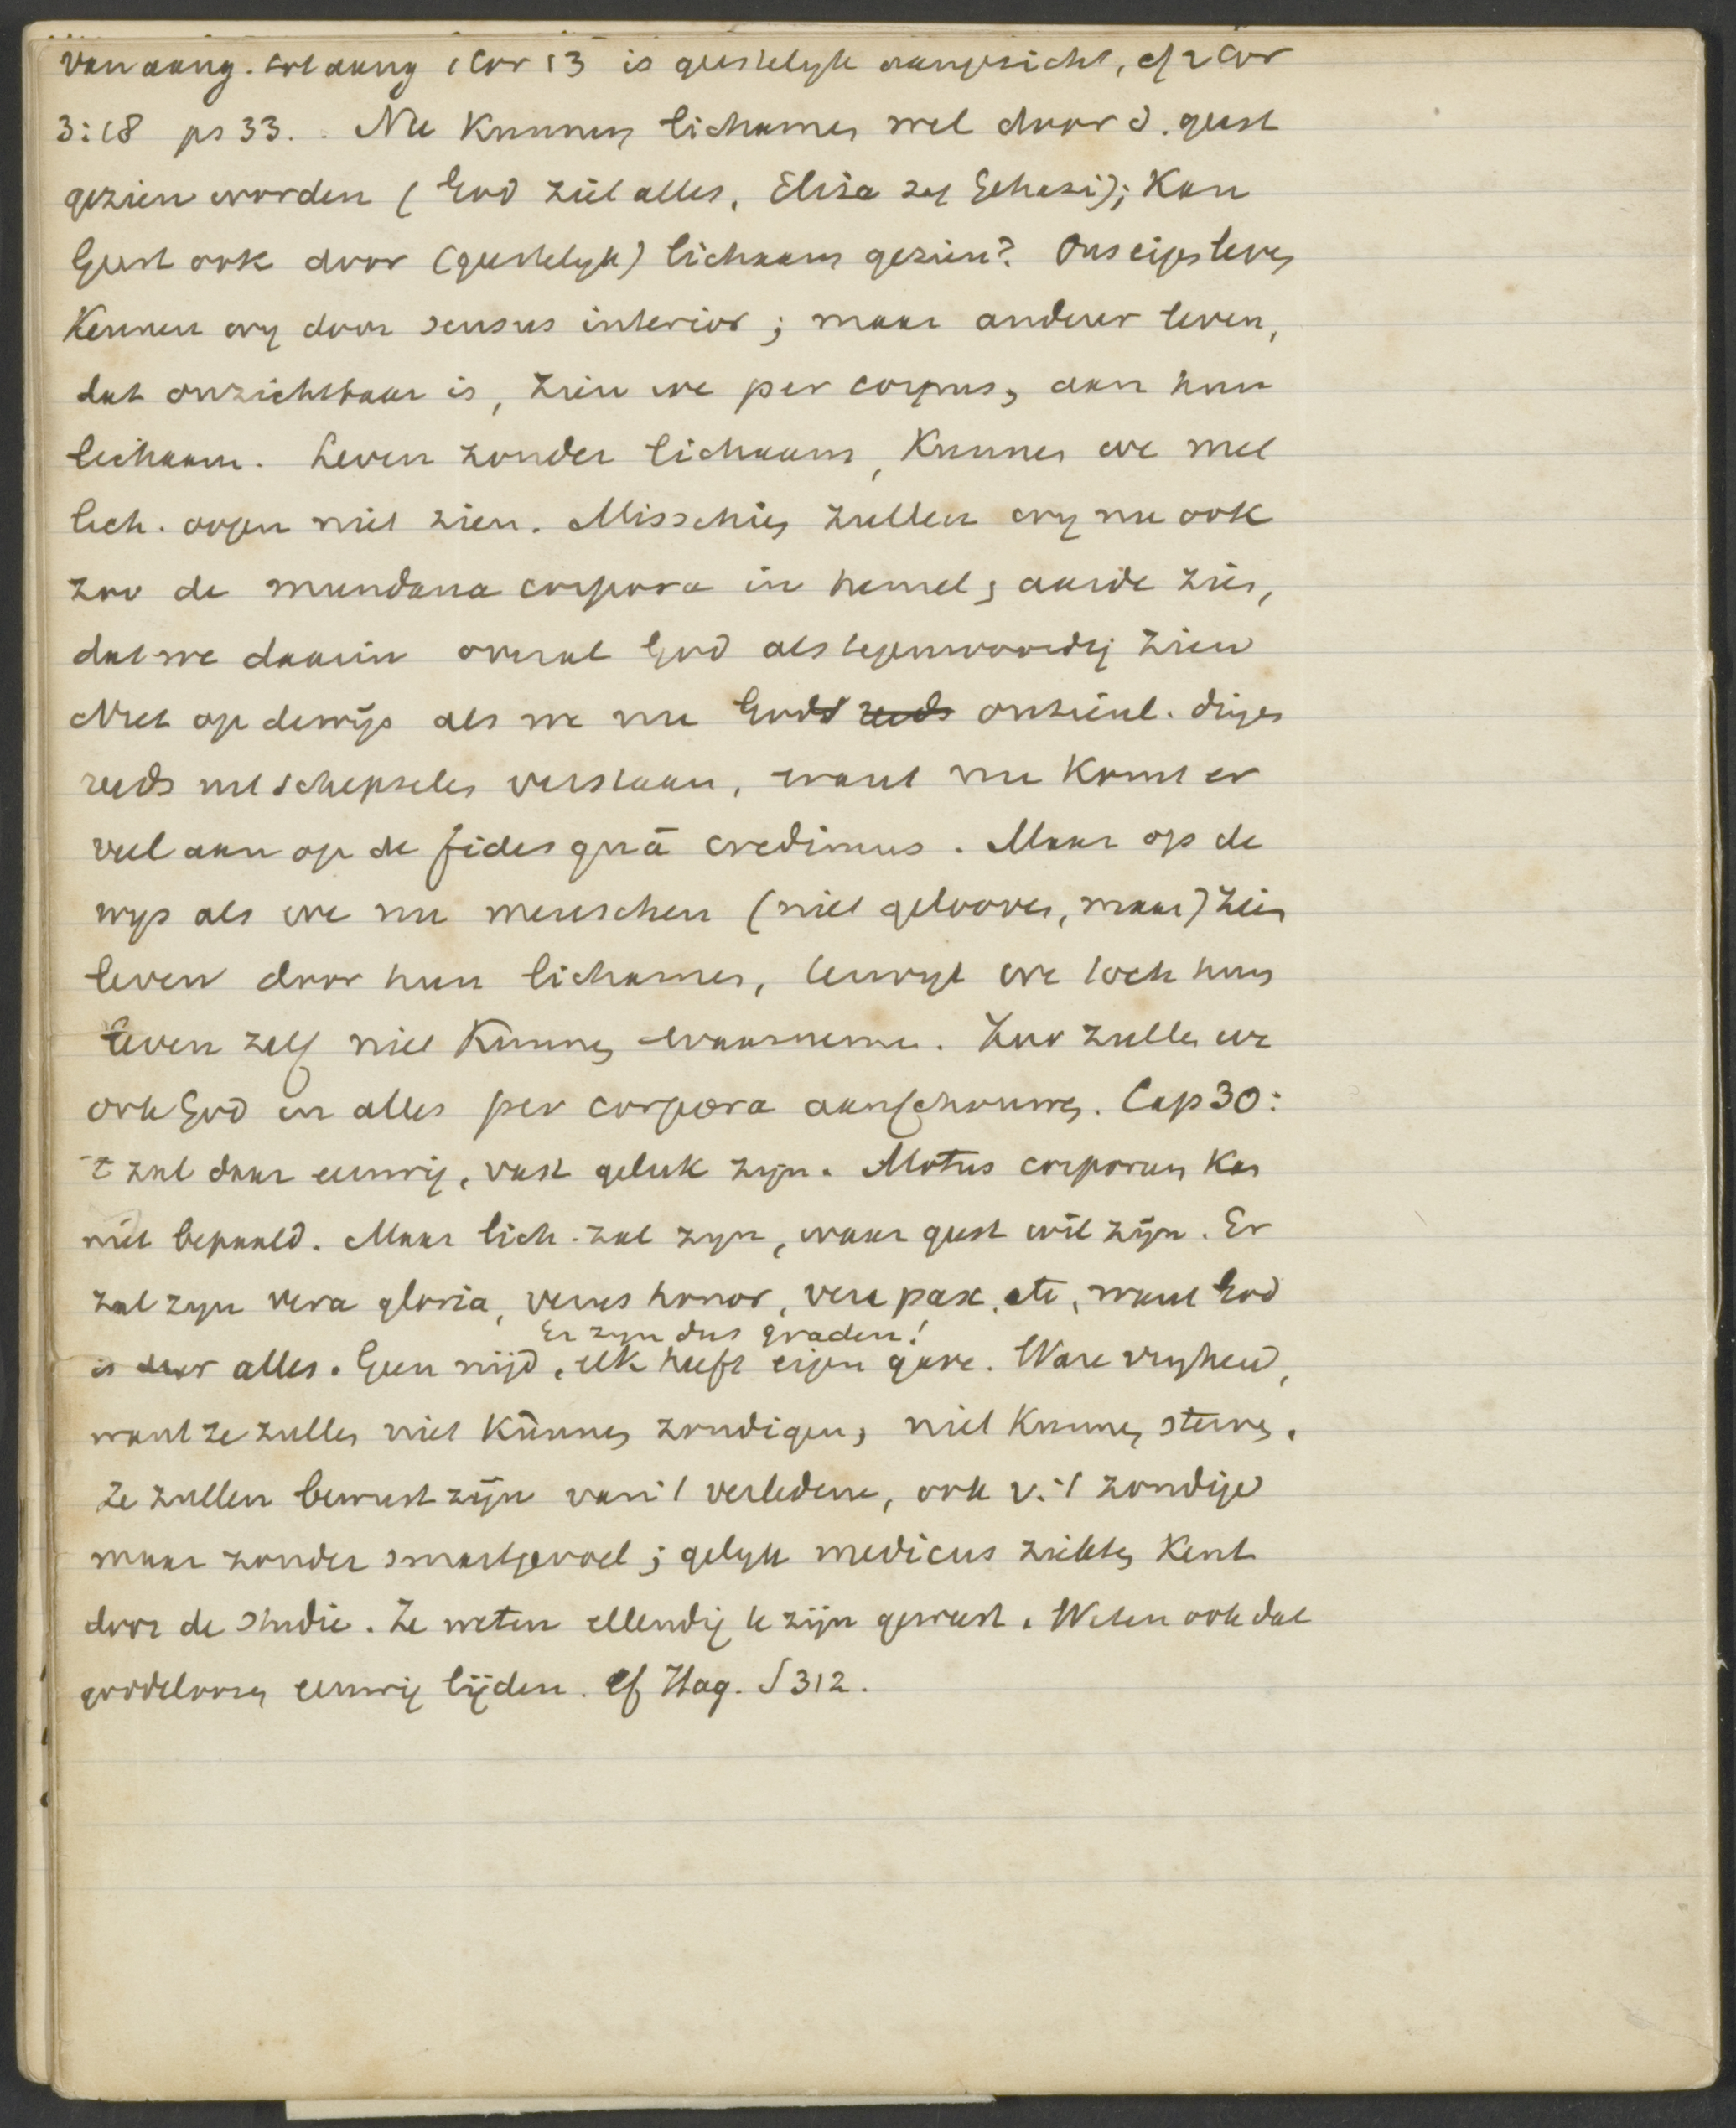 van aang. tot aang 1 Cor 13 is geestelyk aangezicht, cf 2 Cor
3:18 ps 33. Nu kunnen lichamen wel door d. geest
gezien worden (God ziet alles, Elisa zag Gehasi); Kan
Geest ook door (geestelyk) lichaam gezien? Ons eigen leven
Kennen wy door sensus interior; maar andeer leven,
dat onzichtbaar is, zien we per corpus, aan hun
lichaam. Leven zonder lichaam, kunnen we met
lich. oogen niet zien. Misschien zullen wy nu ook
zoo de mundana corpora in hemel en aarde zien,
dat we daarin overal God als tegenwoordig zien
Niet op de wijs als we nu Gods reeds onzienl. dingen
reeds uit schepselen verstaan, want nu komt er
veel aan op de fides quā credimus. Maar op de
wys als we nu menschen (niet gelooven, maar) zien
leven door hun lichamen, terwyl we toch hun
leven zelf niet kunnen waarnemen. Zoo zullen we
ook God in alles per corpora aanschouwen. Cap 30:
't zal daar eeuwig, vast geluk zyn. Motus corporum kan
niet bepaald. Maar lich. zal zyn, waar geest wil zijn. Er
zal zyn vera gloria, verus honor, vera pax, etc, want God
Er zyn dus graden!
is daar alles. Geen nijd, elk heeft eigen gave. Ware vryheid,
want ze zullen niet kunnen zondigen, niet kunnen sterven.
Ze zullen bewust zijn van 't verledene, ook v. 't zondige
maar zonder smartgevoel; gelyk medicus ziekten kent
door de studie. Ze weten ellendig te zijn geweest. Weten ook dat
goddeloozen eeuwig lijden. cf Hag. § 312.